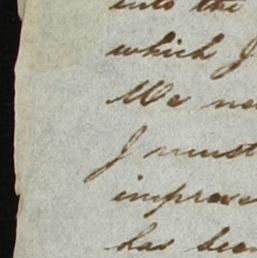 into the
which I
We no
I must
improve
has been